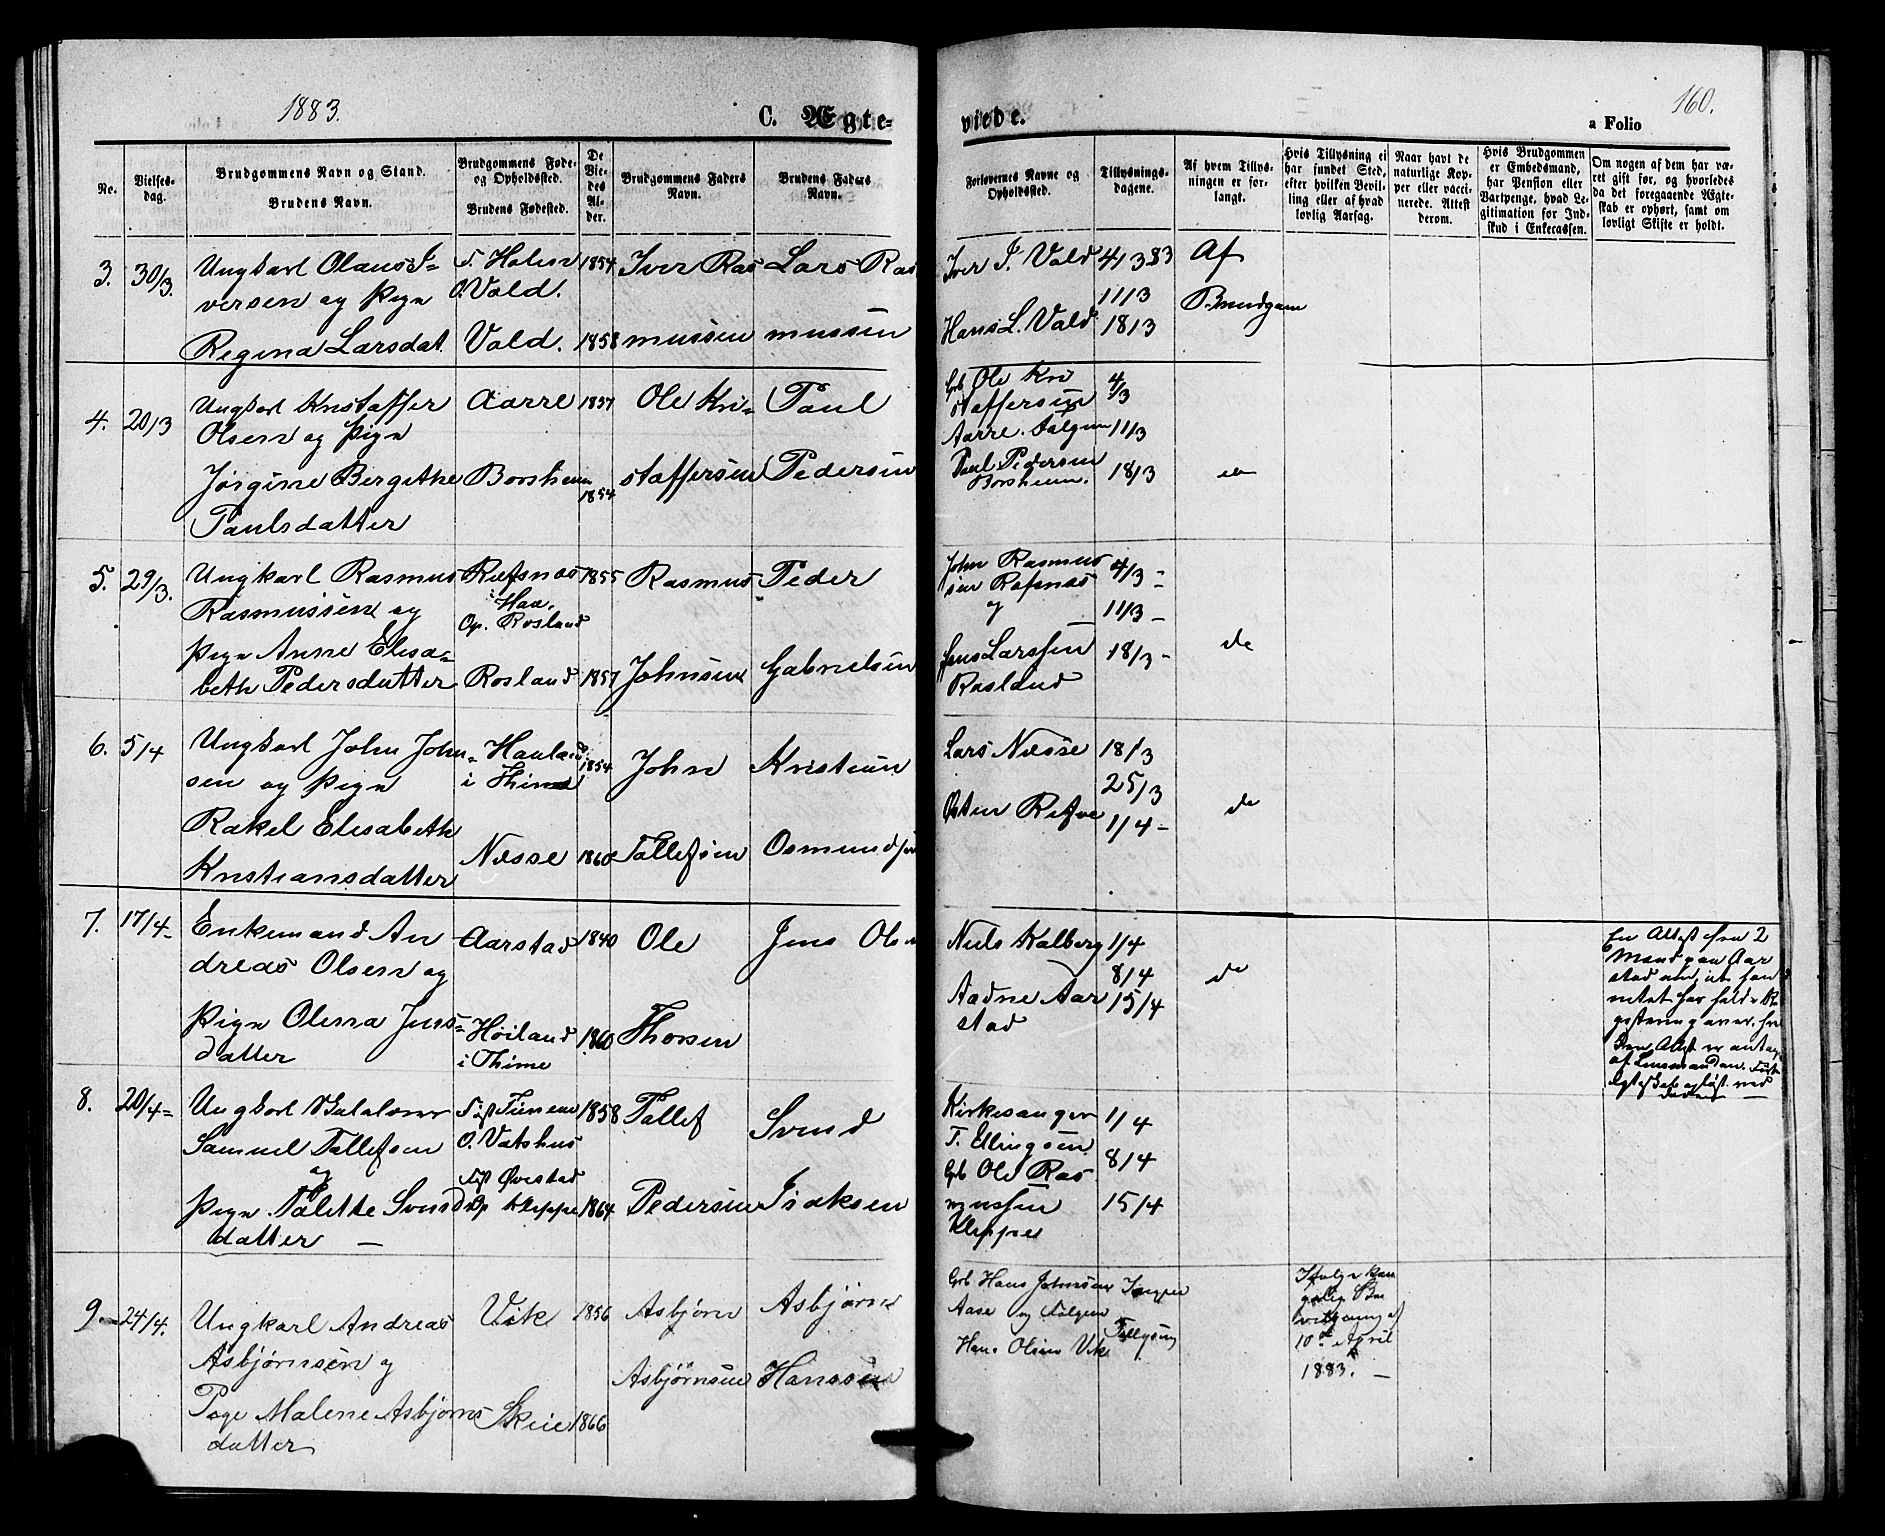 1883.
C. Ægte-
viede.
160.
a Folio
No.
Vielses-
dag.
Brudgommens Navn og Stand.
Brudens Navn.
Brudgommens Føde-
og Opholdsted.
Brudens Fødested.
De
Vie-
des
Al-
der.
Brudgommens Faders
Navn.
Brudens Faders
Navn.
Forlovernes Navne og
Opholdssted.
Tillysnings-
dagene.
Af hvem Tillys-
ningen er for-
langt.
Hvis Tillysning ei
har fundet Sted,
efter hvilken Bevil-
ling eller af hvad
lovlig Aarsag.
Naar havt de
naturlige Kop-
per eller vacci-
nerede. Attest
derom.
Hvis Brudgommen
er Embedsmand,
har Pension eller
Vartpenge, hvad Le-
gitimation for Ind-
skud i Enkecassen.
Om nogen af dem har væ-
ret gift før, og hvorledes
da det foregaaende Ægte-
skab er ophørt, samt om
lovligt Skifte er holdt.
3. 30/3.
Ungkarl Olaus I-
versen og Pign
Regina Larsdat.
O. Vold.
Vold.
1854
1858
Iver Ras
mussen
Lars Ras
mussen
Iver I. Vold
Hans L. Vold
4/3 83
11/3
18/3
Af
Brudgom
4. 20/3
Ungkarl Kristoffer
Olsen og Pign
Jørgine Bergithe
Paulsdatter
Aarre
Borsheim
1857
1854
Ole Kri-
stoffersen
Paul
Pedersen
Grb Ole Kri
stoffersen
Aarre.
Paul Pedersen
Borsheim.
4/3
11/3
18/3
5. 29/3.
Ungkarl Rasmus
Rasmussen og
Pign Anne Elisa-
beth Pedersdatter
Refsnæs
i Haa,
Op. Rosland
Rosland
1855
1857
Rasmus
Johnsen
Peder
Gabrielsen
John Rasmus
sen Refsnæs
og
Jens Larssen
Rosland
4/3 -
11/3 -
18/3 -
do
6. 5/4
Ungkarl John John-
sen og Pign
Rakel Elisabeth
Kristiansdatter
Haaland
i Thime
Næsse
1854
1860
John
Tollefsen
Kristian
Osmundsen
Lars Næsse
Østen Refve
18/3
25/3
1/4 -
do
7. 17/4-
Enkemand An
dreas Olsen og
Pign Olena Jens-
datter
Aarstad
Høiland
i Thime
1840
1860
Ole
Thorsen
Jens Olsen
Niels Kalberg
Aadne Aar
stad
1/4
8/4
15/4
do
En Attest fra 2
Mænd paa Aar
stad
8. 20/4-
Ungkarl
Samuel Tollefsen
og
Pign Tolette Svends
datter —
O. Vatshus
Øvestad
Op Kleppe
1858
1864
Tollef
Pedersen
Svend
Isaksen
Kirkesanger
T. Ellingsen
Grb Ole Ras
mussen
Kleppe
1/4
8/4
15/4
9. — 24/4.
Ungkarl Andreas
Asbjørnsen og
Pige Malene Asbjørns
datter
Vik
Skeie
1856
1866
Asbjørn
Asbjørnsen
Asbjørn
Hanssen
Grb Hans Johnsen
Aase og
Hans Olsen Vik
Ingen
Tillysning
Ifølge kon
gelig Be
villgning af
10de April
1883. —